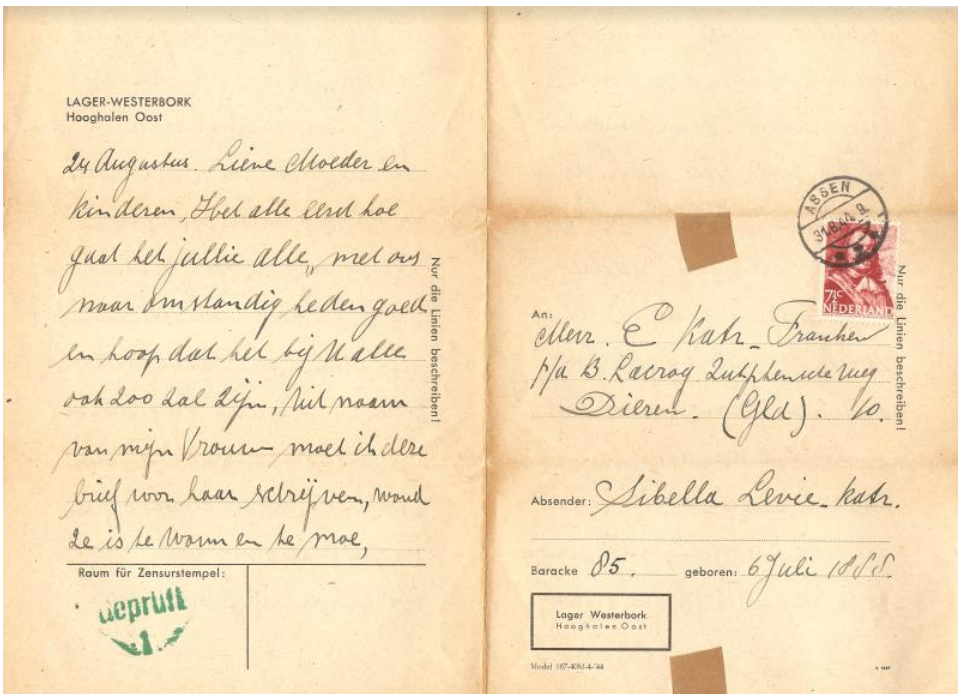 LAGER-WESTERBORK
Hooghalen Oost
24 Augustus. Lieve Moeder en
kinderen, Het alle eerst hoe
gaat het jullie alle, met ons
naar omstandig heden goed
en hoop dat het bij U alle
ook zoo zal zijn, Uit naam
van mijn Vrouw moet ik deze
brief voor haar schrijven, want
ze is te warm en te moe,
Nur die Linien beschreiben!
Raum für Zensurstempel:
Geprüft
1
ASSEN
31.8.44. 9
7½C
NEDERLAND
Nur die Linien beschreiben!
An:
Mevr. E Katz-Franken
p/a B. Zutphensche weg
Dieren. (Gld). 10.
Absender: Sibella Levie-Katz.
Baracke 85. geboren: 6 Juli
Lager Westerbork
Hooghalen Oost
Model 167-40M-4-'44